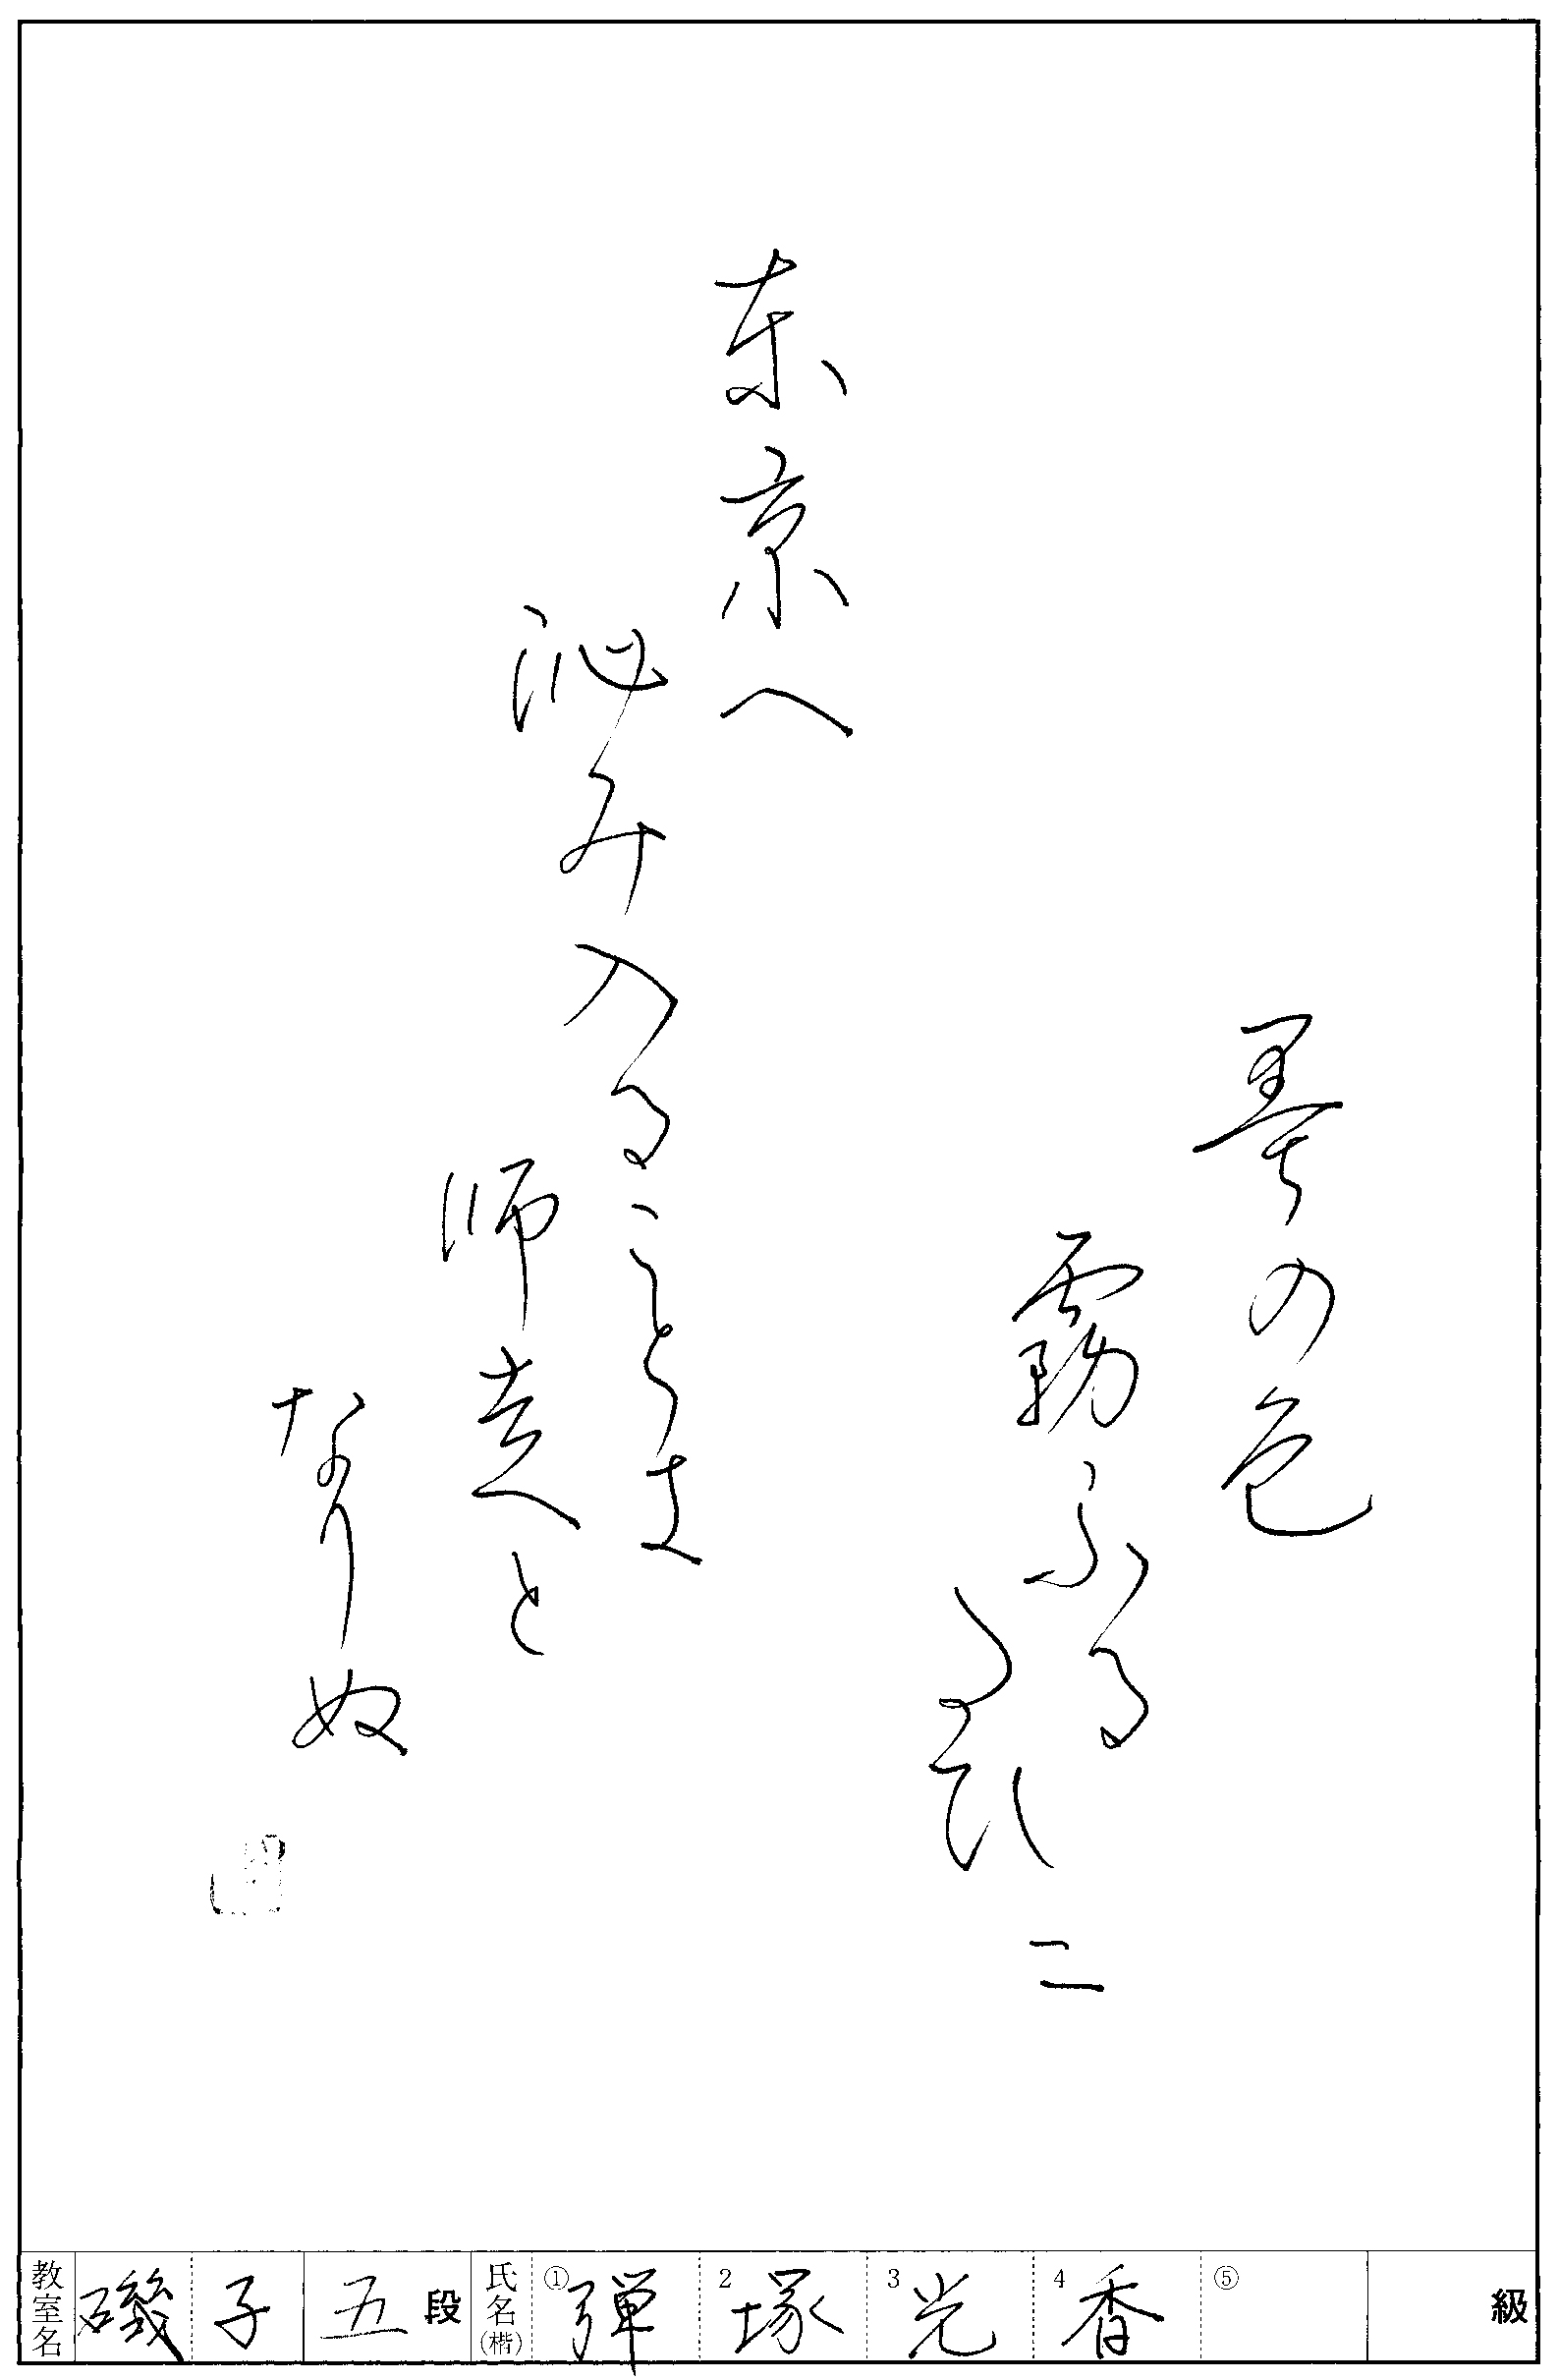 墨の色
霧ふる
たひに
東京へ
沁み入ることき
師走と
なりぬ
教室名 磯子 五段 氏名(楷) ①弾 2塚 3光 4香 ⑤ 級